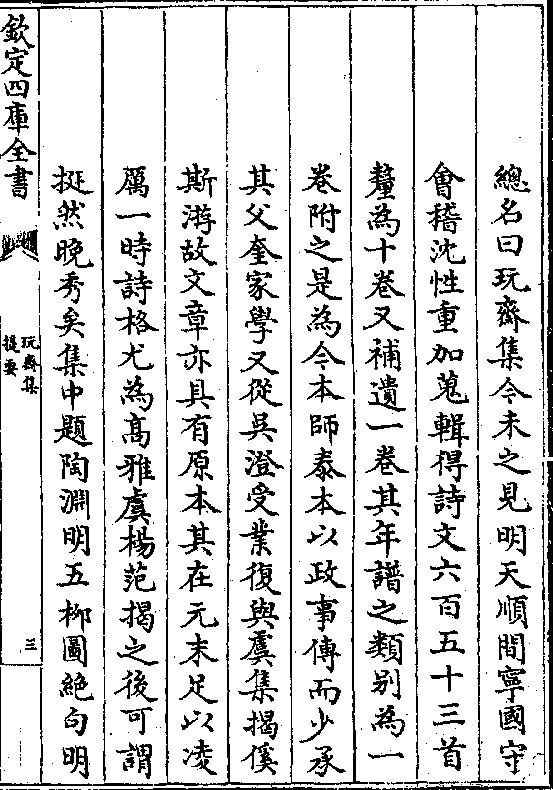 總名曰玩齋集今未之見明天順間寧國守
會稽沈性重加蒐輯得詩文六百五十三首
釐為十卷又補遺一卷其年譜之類别為一
卷附之是為今本師泰本以政事傳而少承
其父奎家學又從吳澄受業復與虞集揭傒
斯游故文章亦具有原本其在元末足以凌
厲一時詩格尤為高雅虞楊范揭之後可謂
挺然晚秀矣集中題陶淵明五柳圖絶句明
欽定四庫全書
玩齋集
提要
三